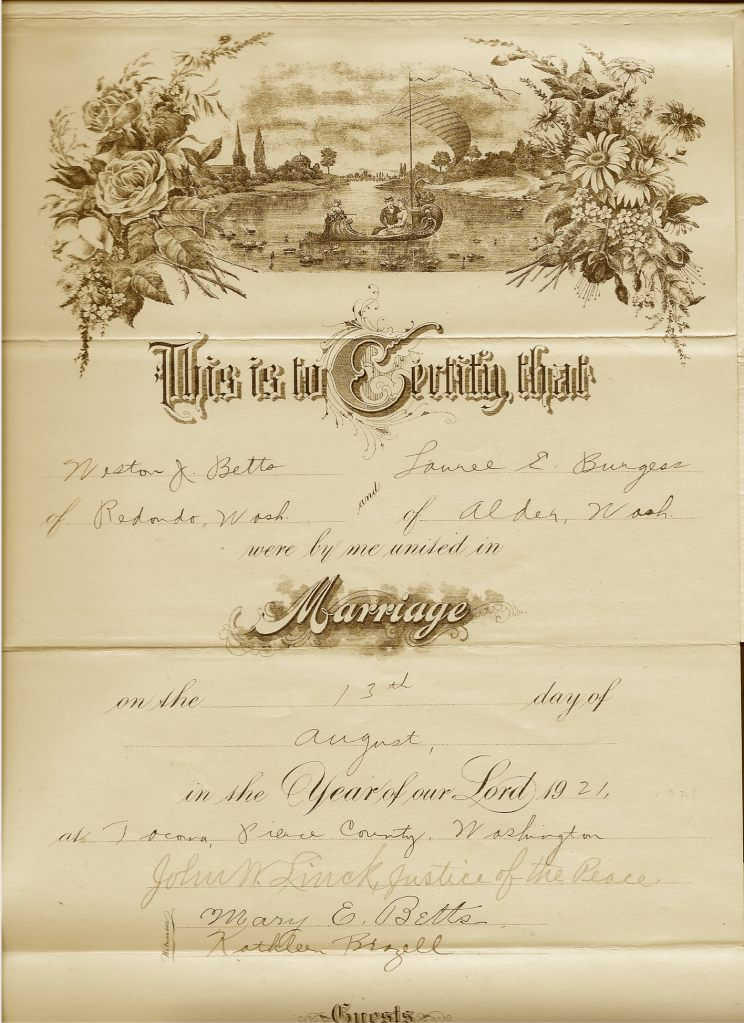 This is to Certify, that
Weston J. Betts and Lauree E. Burgess
of Redondo, Wash. of Alder, Wash.
were by me united in
Marriage
on the 13th day of
August,
in the Year of our Lord 1921,
at Tacoma, Pierce County, Washington
John W. Linck, Justice of the Peace.
Witnesses
Mary E. Betts
Kathleen Brazell
Guests